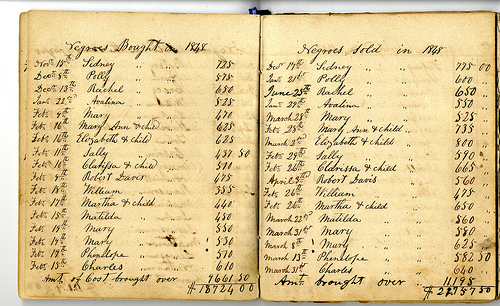 Negroes Bought in 1848
Novr 15th Sidney " " 725
Decr 8th Polly " " 575
Decr 13th Rachel " " 650
Jany 22nd Avaline " " 525
Feby 9th Mary " " 470
Feby 16th Mary Ann & child " 625
Feby 10th Elizabeth & child " 625
Feby 11th Sally " " 437 50
Feby Clarissa & child "
Feby Robert Davis " 475
Feby 18th William " " 355
Feby 17th Martha & child " 440
Feby 15th Matilda " " 450
Feby 19th Mary " " 550
Feby 17th Mary " " 530
Feby 19th Phenelope " " 570
Feby 15th Charles " " 610
Amt of Cost brought over 9661 50
$18724 00
Negroes Sold in 1848
Decr 17th Sidney " " 775 00
Jany 21st Polly " " 600 "
June 25th Rachel " " 650 "
Jany 29th Avaline " " 550 "
March 28th Mary " " 525 "
Feby 25th Mary Ann & child " 735 "
March 2nd Elizabeth & child " 800 "
Feby 29th Sally " " 540 "
Feby 26th Clarissa & child " 665 "
April 5th Robert Davis " 560 "
Feby 26th William " " 475 "
Feby 26th Martha & child " 650 "
March 22nd Matilda " " 560 "
March 31st Mary " " 580 "
March 8th Mary " " 625 "
March 13th Phenelope " " 582 50
March 31st Charles " " 640 "
Amt brought over " 11195